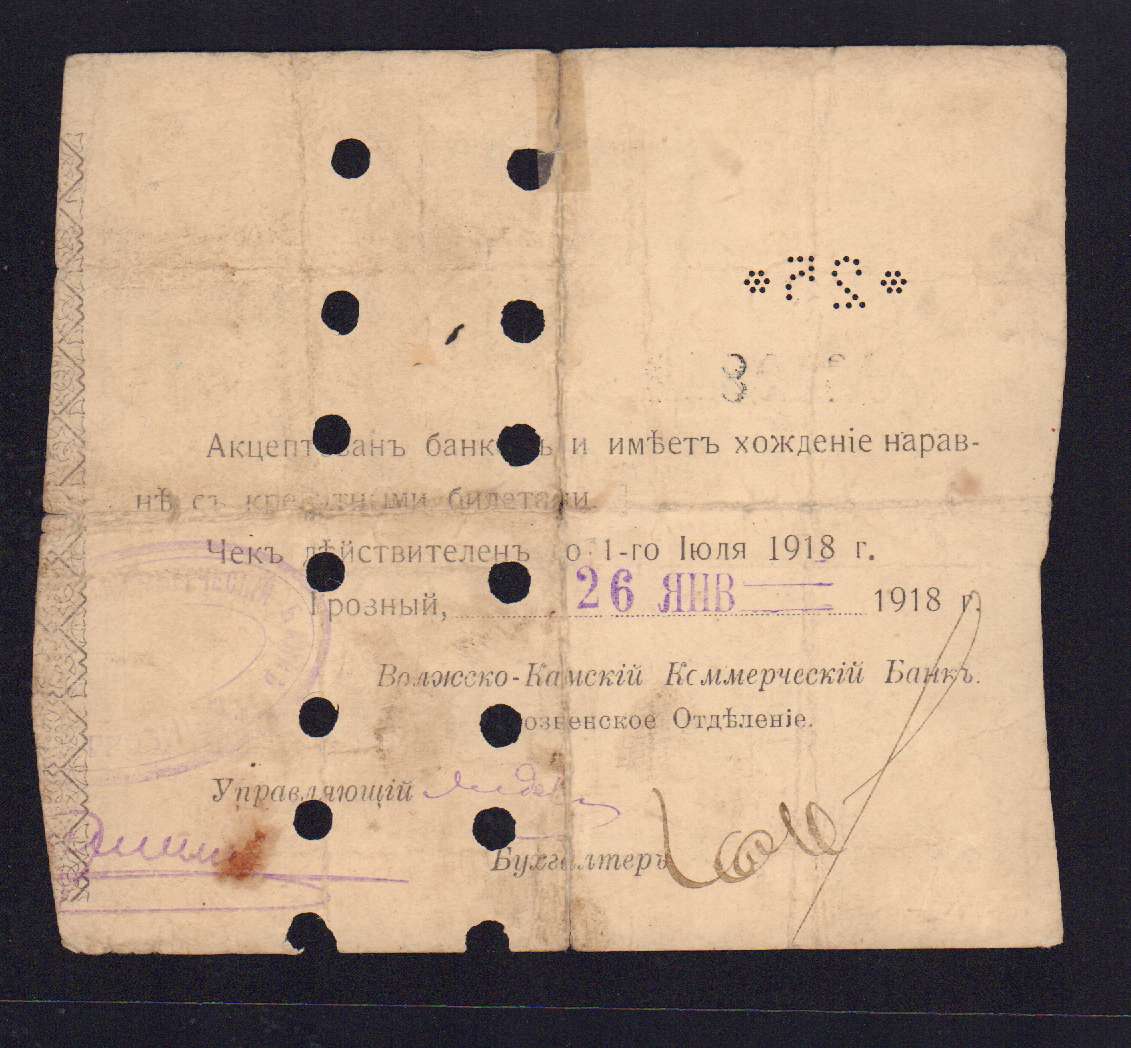 *25*
8
Акцептованъ банкомъ и имѣетъ хожденіе нарав-
нѣ съ кредитными билетами
Чекъ дѣйствителенъ до 1-го Іюля 1918 г.
Грозный, 26 ЯНВ 1918 г.
Волжско-Камскій Коммерческій Банкъ.
Грозненское Отдѣленіе.
Управляющій
Бухгалтеръ